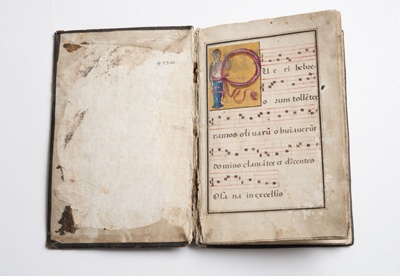 P ueri hebre
o rum tolle͂tes
ramos oli uarū obuiauerūt
domino clamātes et dicentes
Osa na in excelsis